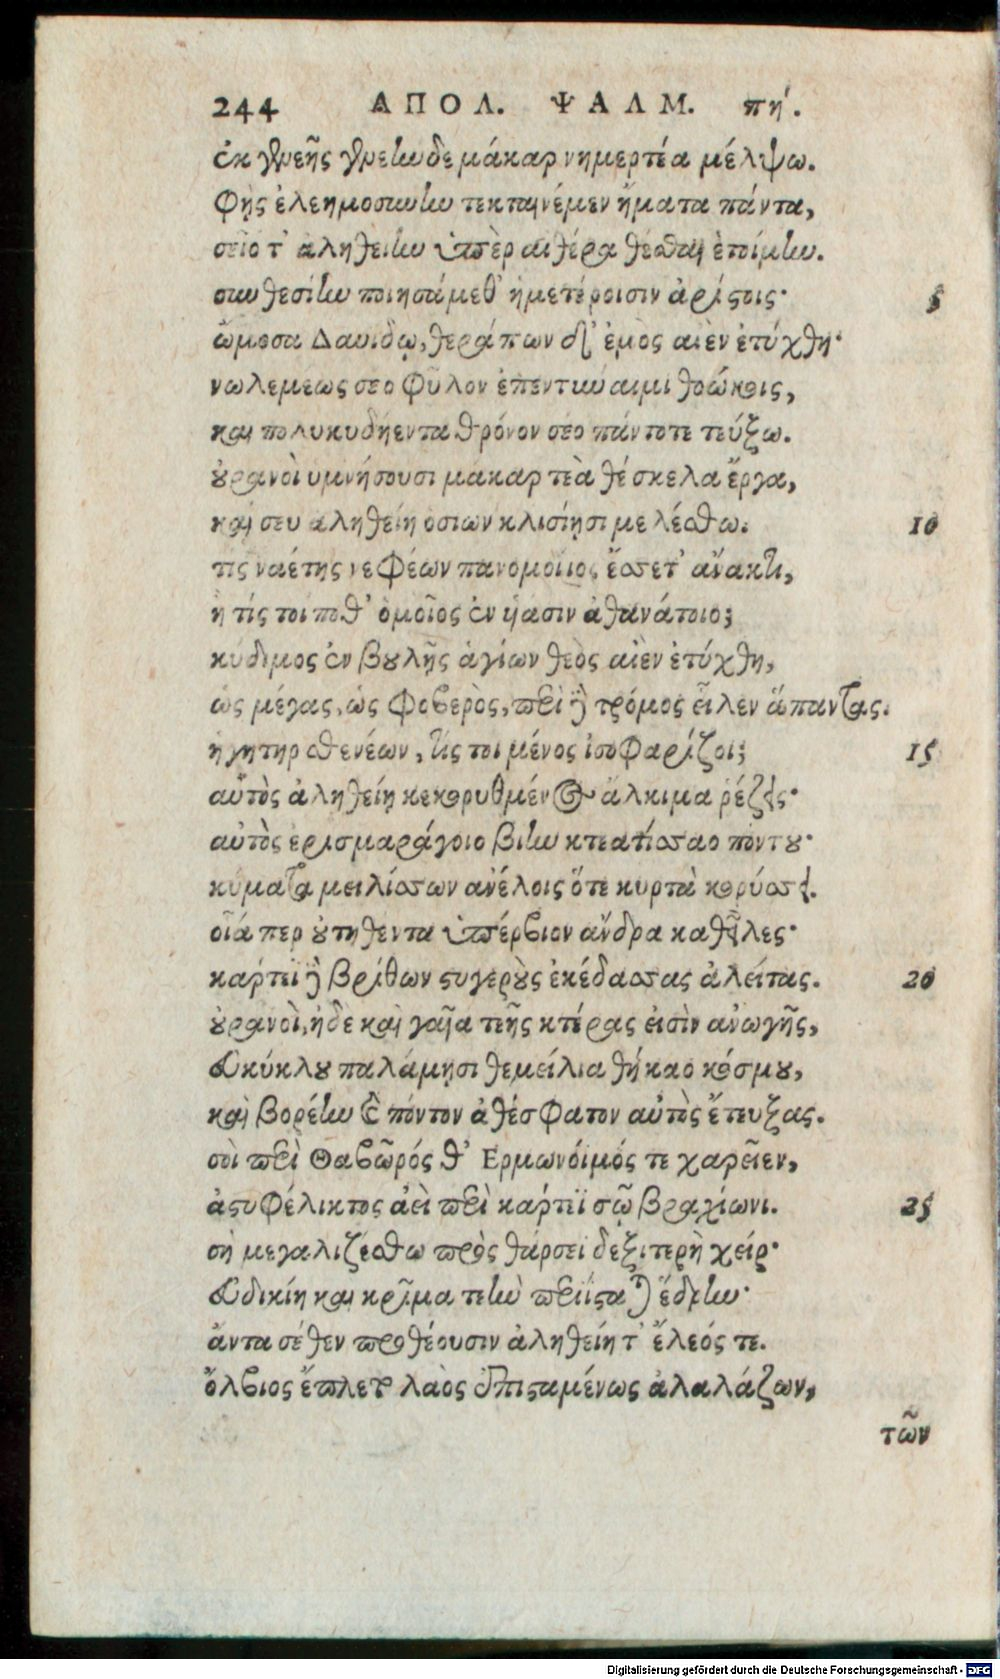 244 ΑΠΟΛ. ΨΑΛΜ. πή.
ἐκ γενεῆς γενεὴν δε μάκαρ νημερτέα μέλψω.
Φῂς ἐλεημοσύνην τεκταινέμεν ἤματα πάντα,
σεῖο τ' ἀληθείην ὑπὲρ αἰθέρα θέσθαι ἑτοίμην.
συνθεσίην ποιησάμεθ' ἡμετέροισιν ἀρίστοις· 5
ὤμοσα Δαυίδῳ, θεράπων δ' ἐμὸς αἰὲν ἐτύχθη·
νωλεμεως σεο φῦλον ἐπεντυνῶ θοώκοις,
καὶ πολυκυδήεντα θρόνον σέο πάντοτε τεύξω.
οὐρανοὶ υμνήσουσι μακαρ τεὰ θέσκελα ἔργα,
καὶ σευ ἀληθείη οσιων κλισίησι μελέσθω. 10
τίς ναέτης νεφέων πανομοίιος ἔσσετ' ἄνακτι,
ἢ τίς τοι ποθ' ὁμοῖος ἐν υἱάσιν ἀθανάτοιο;
κύδιμος ἐν βουλῇς ἁγίων θεὸς αἰὲν ἐτύχθη,
ὡς μέγας, ὡς φοβερὸς, περὶ γὰρ τρόμος εἷλεν ἅπαντας.
ἡγητηρ σθενέων, τίς τοι μένος ἰσοφαρίζοι; 15
αὐτὸς ἀληθείῃ κεκορυθμένος ἄλκιμα ῥέζεις·
αὐτὸς ἐρισμαράγοιο βίην κτεατίσσαο πόντου·
κύματα μειλίσσων ἀνέλοις ὅτε κυρτὰ κορύσσει.
οἷά περ οὐτηθεντα ὑπέρβιον ἄνδρα καθεῖλες·
κάρτεϊ γὰρ βρίθων στυγεροὺς ἐκέδασσας ἀλείτας. 20
οὐρανοὶ, ἠδὲ καὶ γαῖα τεῆς κτέρας εἰσὶν ἀνωγῆς,
εὐκύκλου παλάμῃσι θεμείλια θήκαο κόσμου,
καὶ βορέην καὶ πόντον ἀθέσφατον αὐτὸς ἔτευξας.
σοὶ περὶ Θαβῶρός θ' Ερμωνόιμός τε χαρεῖεν,
ἀστυφέλικτος ἀεὶ περὶ κάρτεϊ σῷ βραχίωνι. 25
σὴ μεγαλιζέσθω πρὸς θάρσεϊ δεξιτερὴ χείρ·
εὐδικίη καὶ κρῖμα τεὴν περιίσταται ἕδρην·
ἄντα σέθεν προθέουσιν ἀληθείη τ' ἔλεός τε.
ὄλβιος ἔπλετο λαὸς ἐπισταμένως ἀλαλάζων,
τῶν
Digitalisierung gefördert durch die Deutsche Forschungsgemeinschaft - DFG